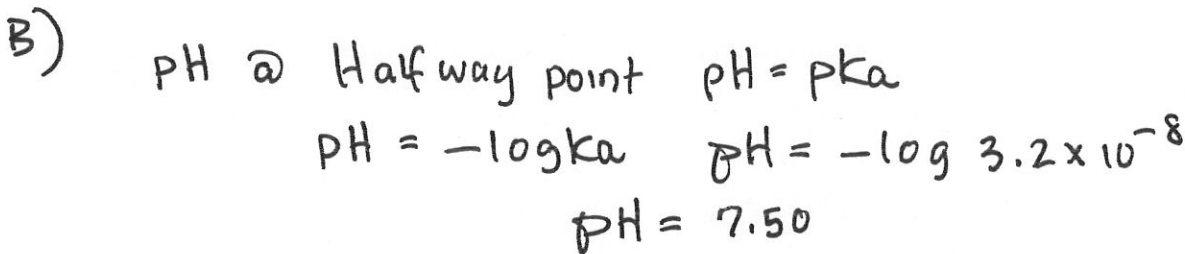 B)
pH @ Halfway point pH = pKa
pH = -logka pH = -log 3.2 x 10⁻⁸
pH = 7.50